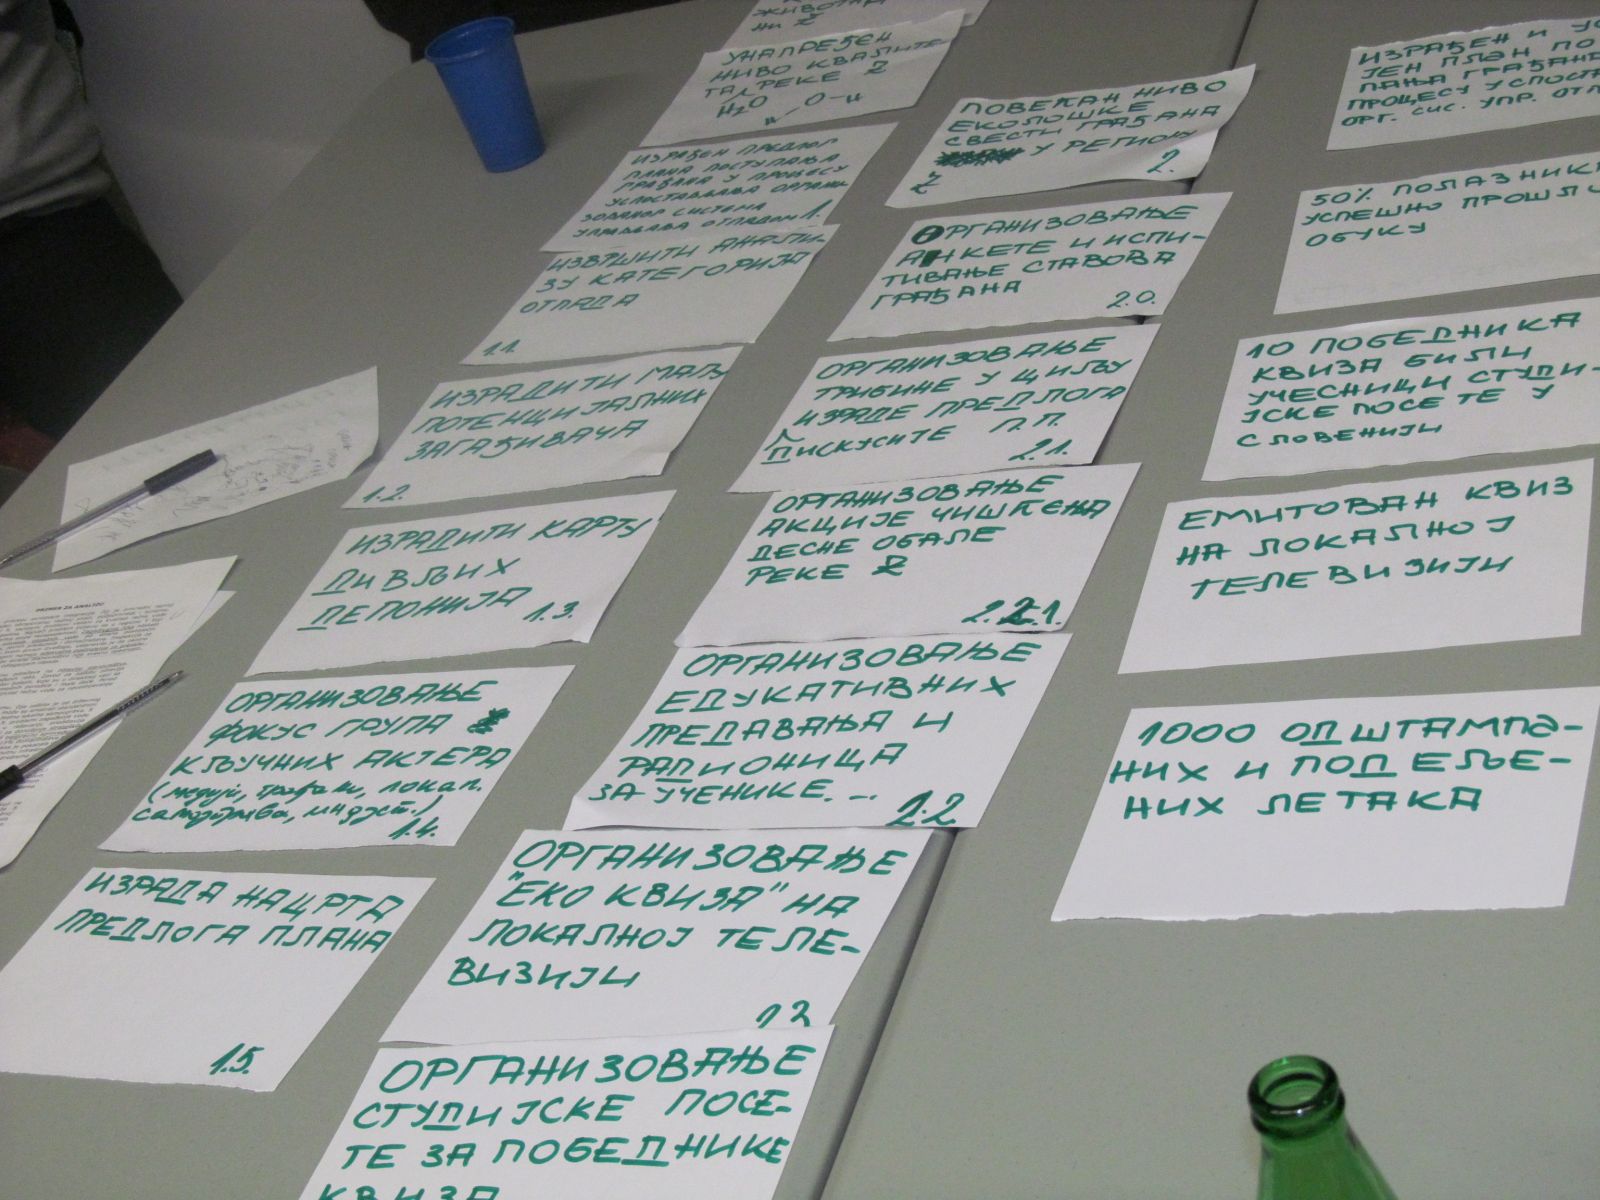 ЖИВОТНА
НИ Z
УНАПРЕЂЕН
НИВО КВАЛИТЕ-
ТА РЕКЕ Z
H2O
O-H
ИЗРАЂЕН ПРЕДЛОГ
ПЛАНА ПОСТУПАЊА
ГРАЂАНА У ПРОЦЕСУ
УСПОСТАВЉАЊА ОРГАНИ-
ЗОВАНОГ СИСТЕМА
УПРАВЉАЊА ОТПАДОМ 1.
ИЗВРШИТИ АНАЛИ-
ЗУ КАТЕГОРИЈА
ОТПАДА
1.1.
ИЗРАДИТИ МАПУ
ПОТЕНЦИЈАЛНИХ
ЗАГАЂИВАЧА
1.2.
ИЗРАДИТИ КАРТУ
ДИВЉИХ
ДЕПОНИЈА 1.3.
ОРГАНИЗОВАЊЕ
ФОКУС ГРУПА
КЉУЧНИХ АКТЕРА
(медији, грађани, локал.
самоуправа, индуст.)
1.4.
ИЗРАДА НАЦРТА
ПРЕДЛОГА ПЛАНА
1.5.
ПОВЕЋАН НИВО
ЕКОЛОШКЕ
СВЕСТИ ГРАЂАНА
У РЕГИОНУ
Z 2.
ОРГАНИЗОВАЊЕ
АНКЕТЕ И ИСПИ-
ТИВАЊЕ СТАВОВА
ГРАЂАНА 2.0.
ОРГАНИЗОВАЊЕ
ТРИБИНЕ У ЦИЉУ
ИЗРАДЕ ПРЕДЛОГА
ДИСКУСИЈЕ П.П.
2.1.
ОРГАНИЗОВАЊЕ
АКЦИЈЕ ЧИШЋЕЊА
ДЕСНЕ ОБАЛЕ
РЕКЕ Z
2.2.1.
ОРГАНИЗОВАЊЕ
ЕДУКАТИВНИХ
ПРЕДАВАЊА И
РАДИОНИЦА
ЗА УЧЕНИКЕ. ...
2.2
ОРГАНИЗОВАЊЕ
"ЕКО КВИЗА" НА
ЛОКАЛНОЈ ТЕЛЕ-
ВИЗИЈИ
ОРГАНИЗОВАЊЕ
СТУДИЈСКЕ ПОСЕ-
ТЕ ЗА ПОБЕДНИКЕ
КВИЗА
ИЗРАЂЕН И
ЈЕН ПЛАН ПО
ПАЊА ГРАЂАНА
ПРОЦЕСУ УСПОСТА
ОРГ. СИС. УПР. ОТП
50% ПОЛАЗНИКА
УСПЕШНО ПРОШЛО
ОБУКУ
10 ПОБЕДНИКА
КВИЗА БИЛИ
УЧЕСНИЦИ СТУДИ-
ЈСКЕ ПОСЕТЕ У
СЛОВЕНИЈИ
ЕМИТОВАН КВИЗ
НА ЛОКАЛНОЈ
ТЕЛЕВИЗИЈИ
1000 ОДШТАМПА-
НИХ И ПОДЕЉЕ-
НИХ ЛЕТАКА
PRIMER ZA ANALIZU